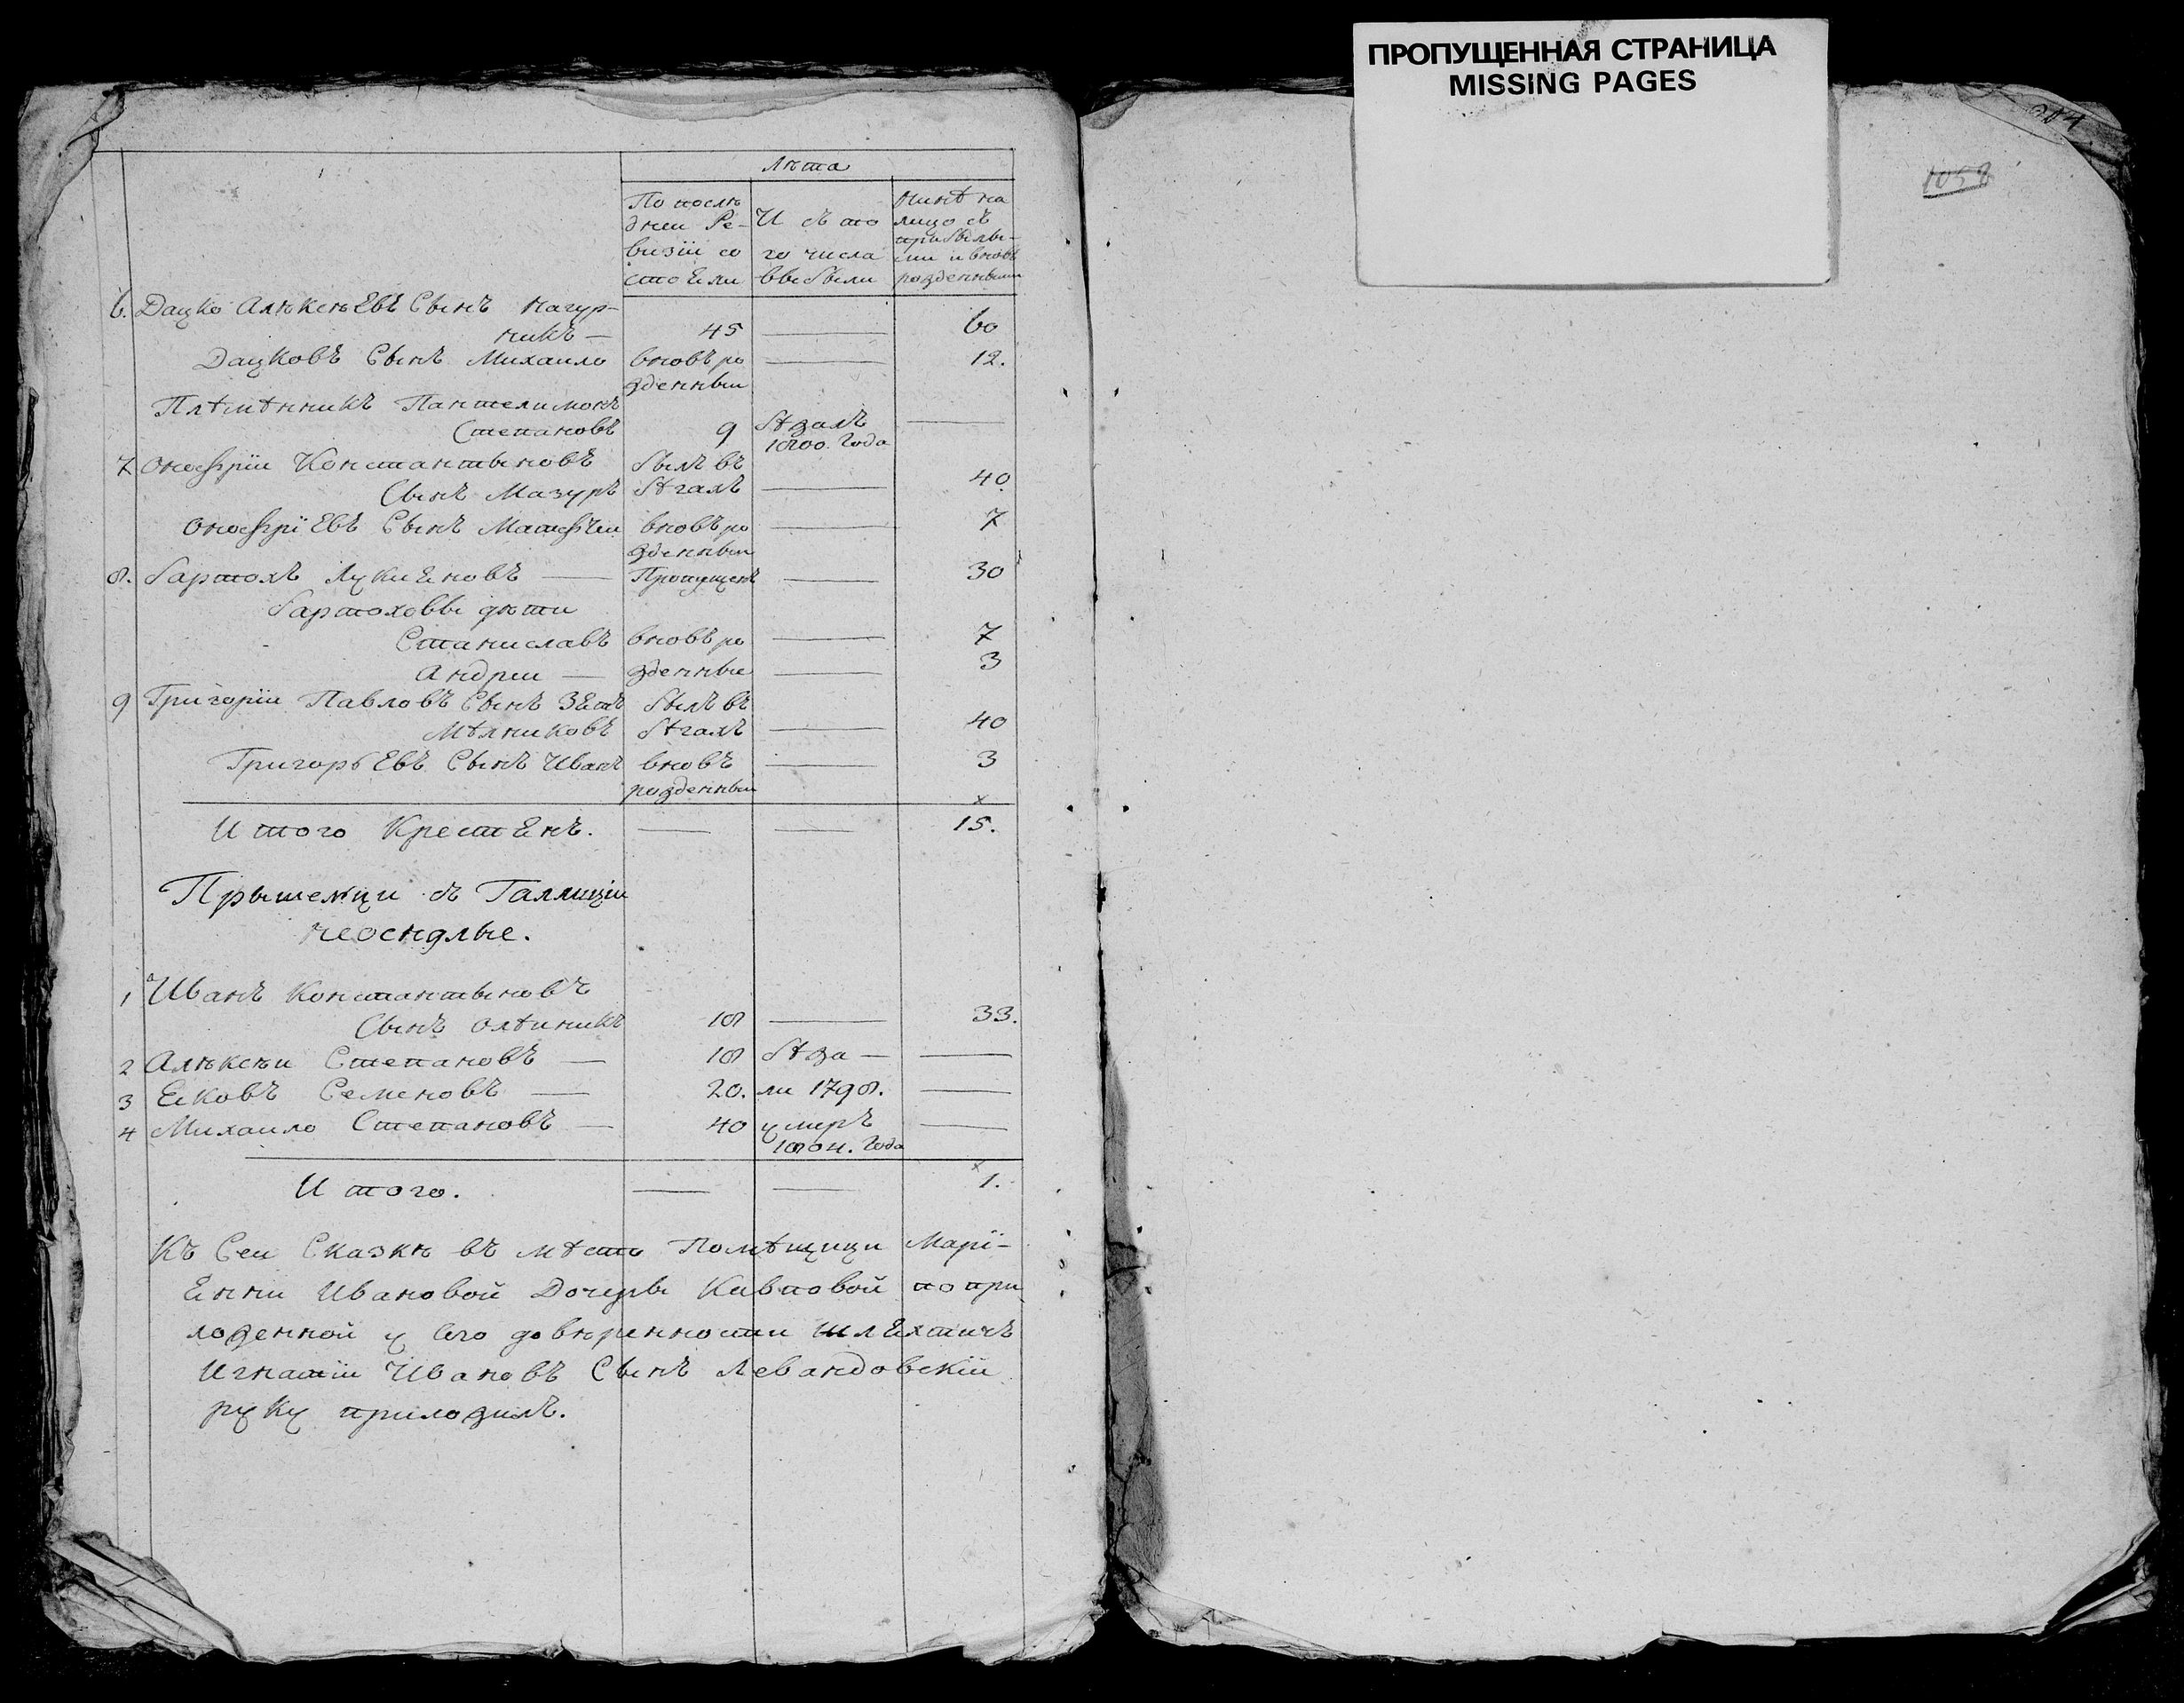 ПРОПУЩЕННАЯ СТРАНИЦА
MISSING PAGES
Лѣта
По послѣ
дней Ре-
визіи со
стоѣли
И съ то
го числа
выбыли
Нинѣ на
лицо съ
прибылы-
ми и вновь
рожденными
6. Дацко Алѣксѣевъ Сынъ Кагур-
никъ — 45 — 60
Дацковъ Сынъ Михаило вновь ро — 12.
жденный
Племенникъ Пантелимонъ
Степановъ 9 бѣжалъ —
1800. Года
7 Онофрій Константыновъ былъ въ
Сынъ Мазуръ бѣгахъ — 40
Онофріевъ Сынъ Матфѣй вновь ро — 7
жденный
8. Бартохъ Лукияновъ — Пропущенъ — 30
Бартоховы дѣти
Станиславъ вновь ро — 7
Андрій — жденные — 3
9 Григорій Павловъ Сынъ Зять былъ въ
Мѣлниковъ бѣгахъ — 40
Григорьевъ Сынъ Иванъ вновь — 3
рожденный
Итого Крестянъ. — — 15.
Прышелци съ Галлиціи
неосѣдлые.
1 Иванъ Константыновъ
Сынъ Олейникъ 18 — 33.
2 Алѣксѣй Степановъ — 18 бѣжа — —
3 Яковъ Семеновъ — 20. ли 1798. —
4 Михаило Степановъ — 40 умеръ —
1804. Года
Итого. — — 1.
Къ Сей Сказкѣ въ мѣсто Помѣщици Марі-
янни Ивановой Дочеры по при
ложенной у его довѣренности шляхтичъ
Игнатій Ивановъ Сынъ Левандовскій
руку приложилъ.
1058